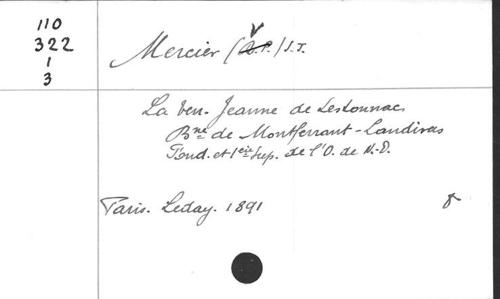 110
322
1
3
Mercier (V.P.) S.J.
La Ven. Jeanne de Lestonnac
Bne de Montferrant-Landiras
Fond. et 1ère Sup. de l'O. de N.-D.
Paris. Leday. 1891